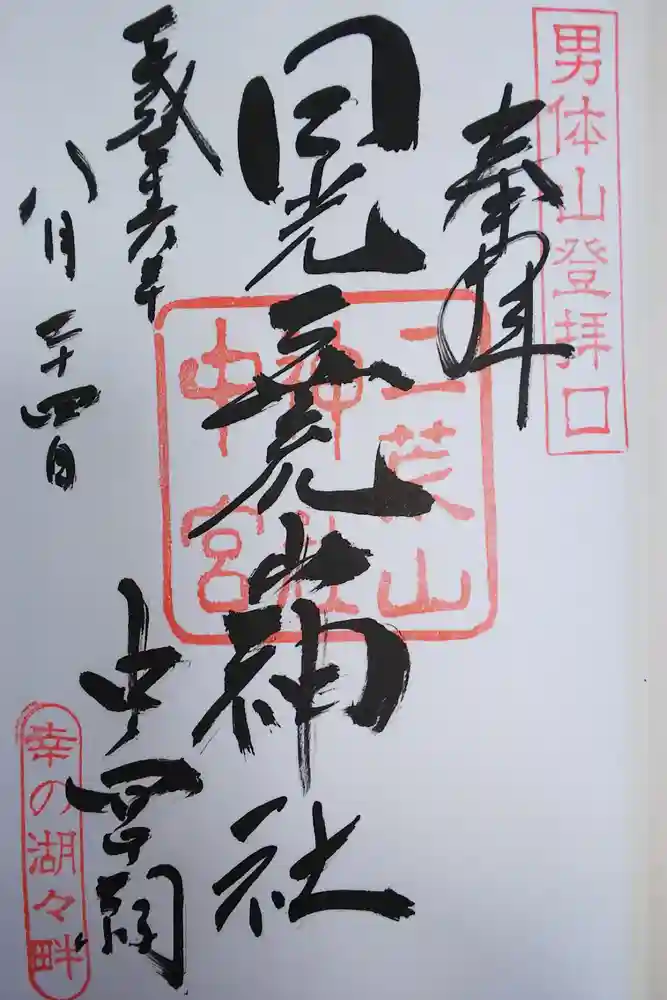 男体山登拝口
奉拝
日光二荒山神社
中宮祠
平成二十六年
八月二十四日
二荒山
神社
中宮
幸の湖々畔